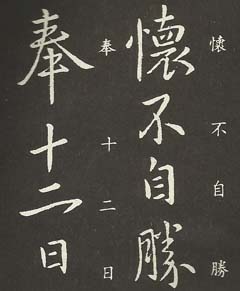 懷不自勝
懷不自勝
奉十二日
奉十二日